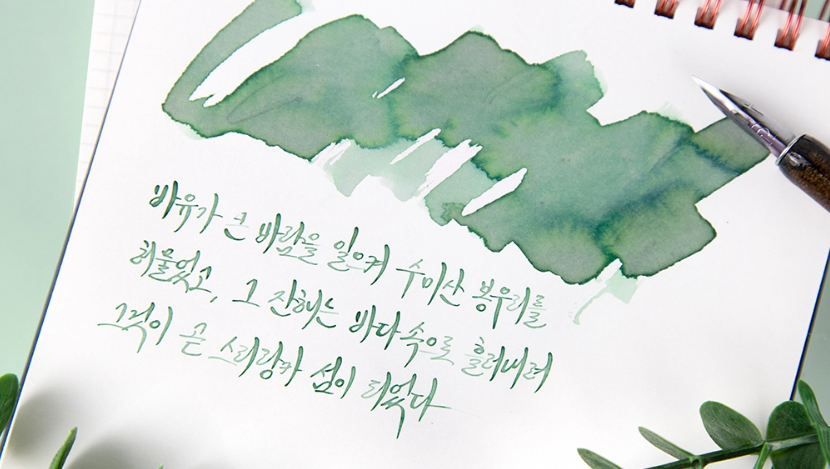 바유가 큰 바람을 일으켜 수미산 봉우리를
허물었고, 그 잔해는 바다 속으로 흘러내려
그것이 곧 스리랑카 섬이 되었다